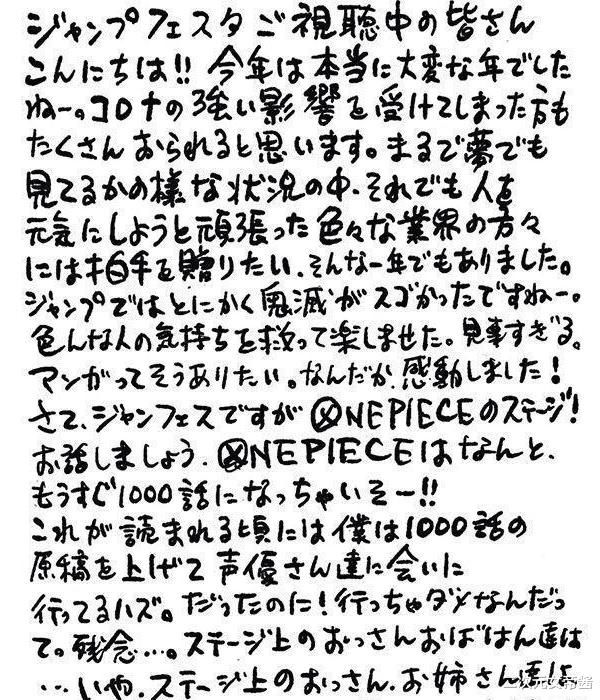 ジャンプフェスタご視聴中の皆さん
こんにちは!! 今年は本当に大変な年でした
ねー。コロナの強い影響を受けてしまった方も
たくさんおられると思います。まるで夢でも
見てるかの様な状況の中、それでも人を
元気にしようと頑張った色々な業界の方々
には拍手を贈りたい、そんな一年でもありました。
ジャンプではとにかく鬼滅がスゴかったですねー。
色んな人の気持ちを救って楽しませた。見事すぎる。
マンガってそうありたい。なんだか感動しました!
さて、ジャンフェスですがONEPIECEのステージ!
お話しましょう。ONEPIECEはなんと、
もうすぐ1000話になっちゃいそー!!
これが読まれる頃には僕は1000話の
原稿を上げて声優さん達に会いに
行ってるハズ。だったのに!行っちゃダメなんだっ
て。残念…。ステージ上のおっさんおばはん達は
…いや、ステージ上のおっさん、お姉さん達は